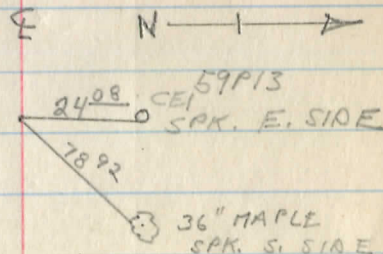 ℄ N
59P13
24 08 CEI
SPK. E. SIDE
78 92
36" MAPLE
SPK. S. SIDE